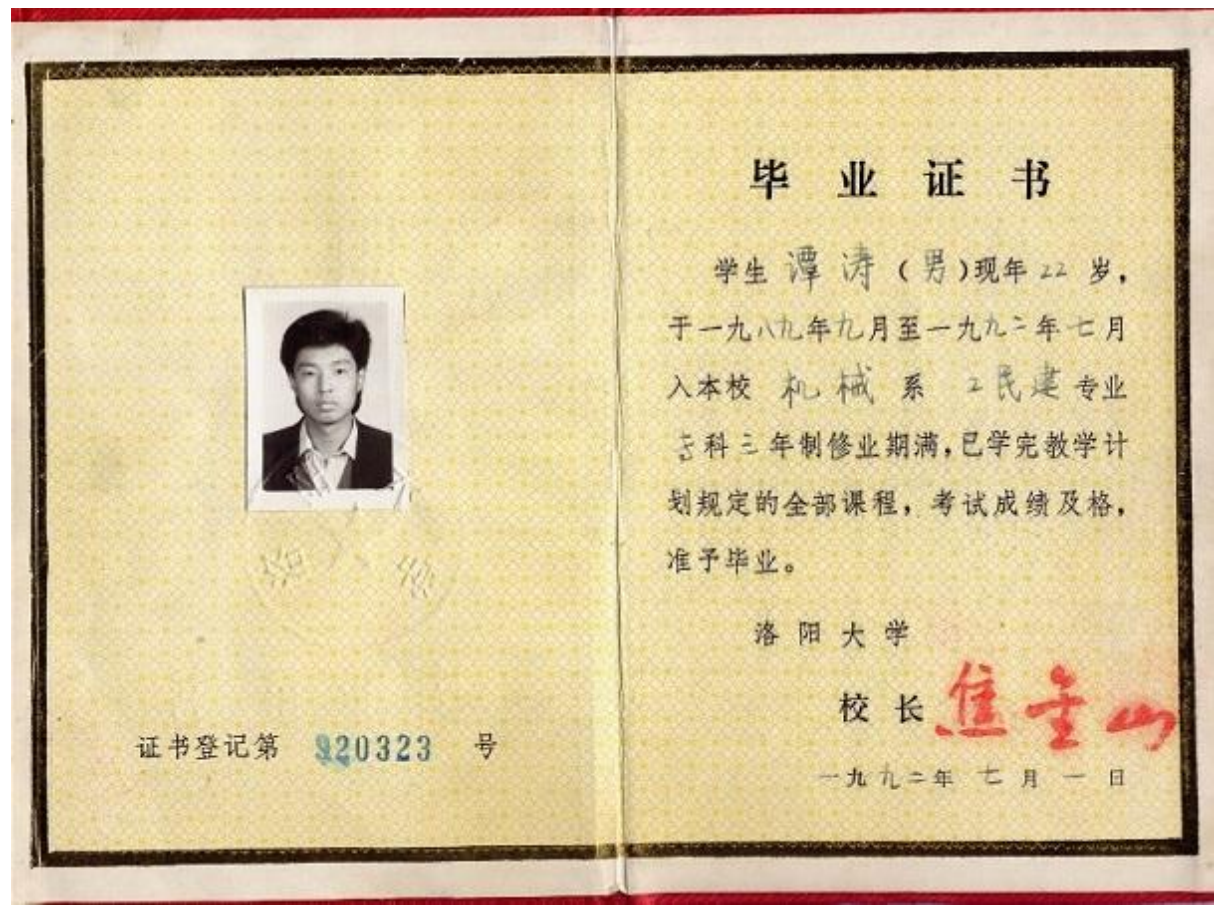 证书登记第 920323 号
毕业证书
学生 潭涛（男）现年 22 岁，
于一九八九年九月至一九九二年七月
入本校 机械 系 工民建 专业
专科三年制修业期满，已学完教学计
划规定的全部课程，考试成绩及格，
准予毕业。
洛阳大学
校长 焦金山
一九九二年七月一日